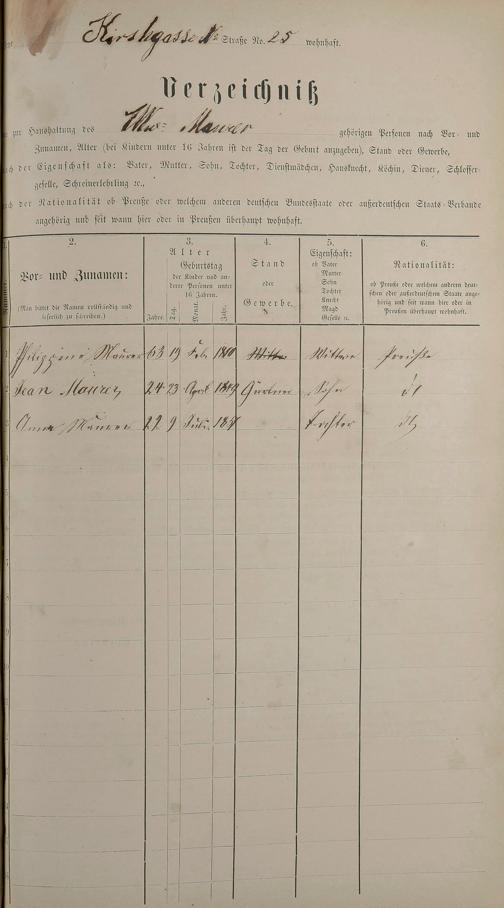 Kirshgasse No Straße No. 25 wohnhaft.
Verzeichniß
zur Haushaltung des Wwe Maurer gehörigen Personen nach Vor- und
Zunamen, Alter (bei Kindern unter 16 Jahren ist der Tag der Geburt anzugeben), Stand oder Gewerbe,
nach der Eigenschaft als: Vater, Mutter, Sohn, Tochter, Dienstmädchen, Hausknecht, Köchin, Diener, Schlosser-
geselle, Schreinerlehrling ꝛc.,
nach der Nationalität ob Preuße oder welchem anderen deutschen Bundesstaate oder außerdeutschen Staats-Verbande
angehörig und seit wann hier oder in Preußen überhaupt wohnhaft.
2. 3. 4. 5. 6.
Vor- und Zunamen:
(Man bittet die Namen vollständig und
leserlich zu schreiben.)
Alter
Geburtstag
der Kinder und an-
derer Personen unter
16 Jahren.
Jahre. Tag. Monat. Jahr.
Stand
oder
Gewerbe.
Eigenschaft:
ob Vater
Mutter
Sohn
Tochter
Knecht
Magd
Geselle ꝛc.
Nationalität:
ob Preuße oder welchem anderen deut-
schen oder außerdeutschen Staate ange-
hörig und seit wann hier oder in
Preußen überhaupt wohnhaft.
1 Philippine Maurer 63 19 Feb. Wittwe Preuße
2 Jean Maurer 24 23 April Gärtner Sohn dt
3 Anna Maurer 22 9 Juli Tochter dt